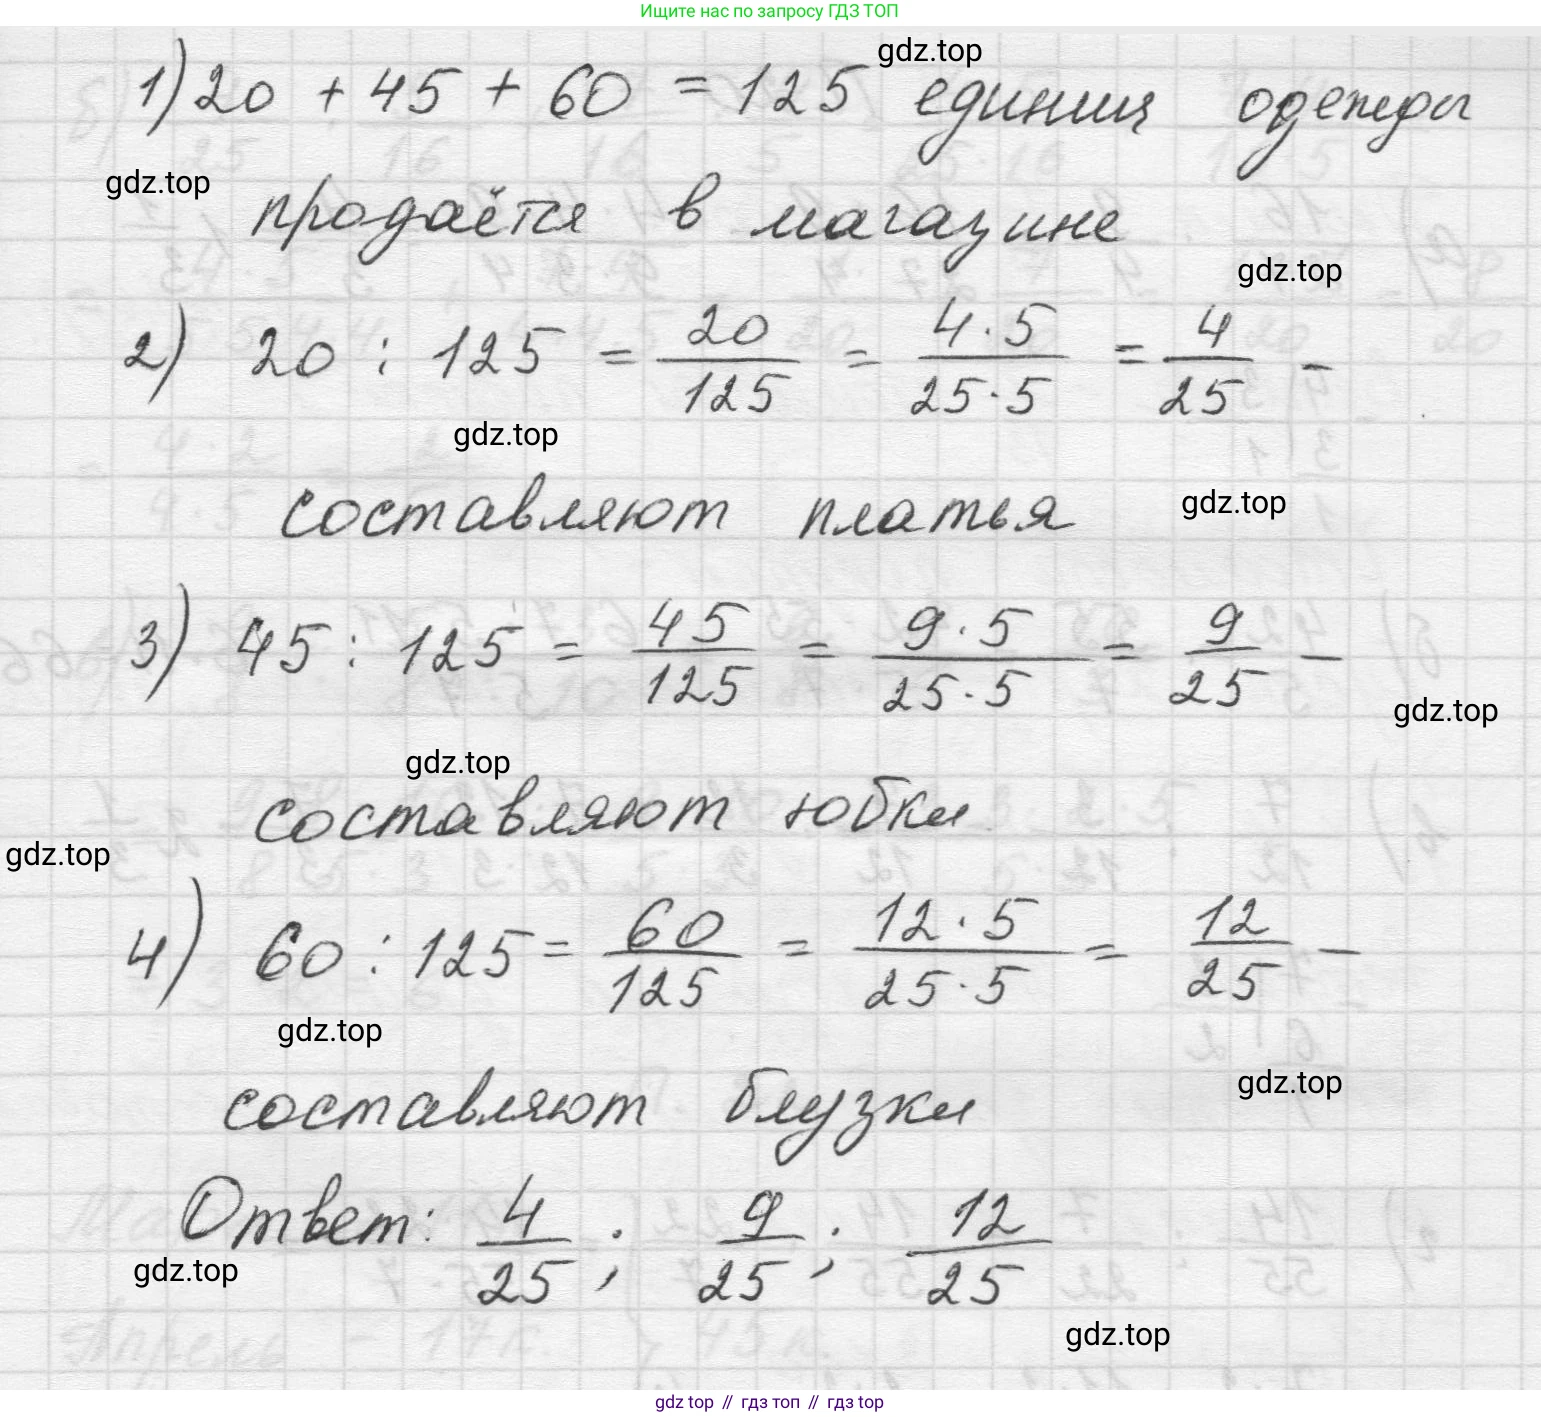 Ищите нас по запросу ГДЗ ТОП
gdz.top
1) 20 + 45 + 60 = 125 единиц одежды
gdz.top
продаётся в магазине
gdz.top
2) 20 : 125 = 20/125 = 4·5/25·5 = 4/25 -
gdz.top
составляют платья
gdz.top
3) 45 : 125 = 45/125 = 9·5/25·5 = 9/25 -
gdz.top
gdz.top
составляют юбки
gdz.top
4) 60 : 125 = 60/125 = 12·5/25·5 = 12/25 -
gdz.top
составляют блузки
gdz.top
Ответ: 4/25 ; 9/25 ; 12/25
gdz.top
gdz.top
gdz top // гдз топ // гдз top